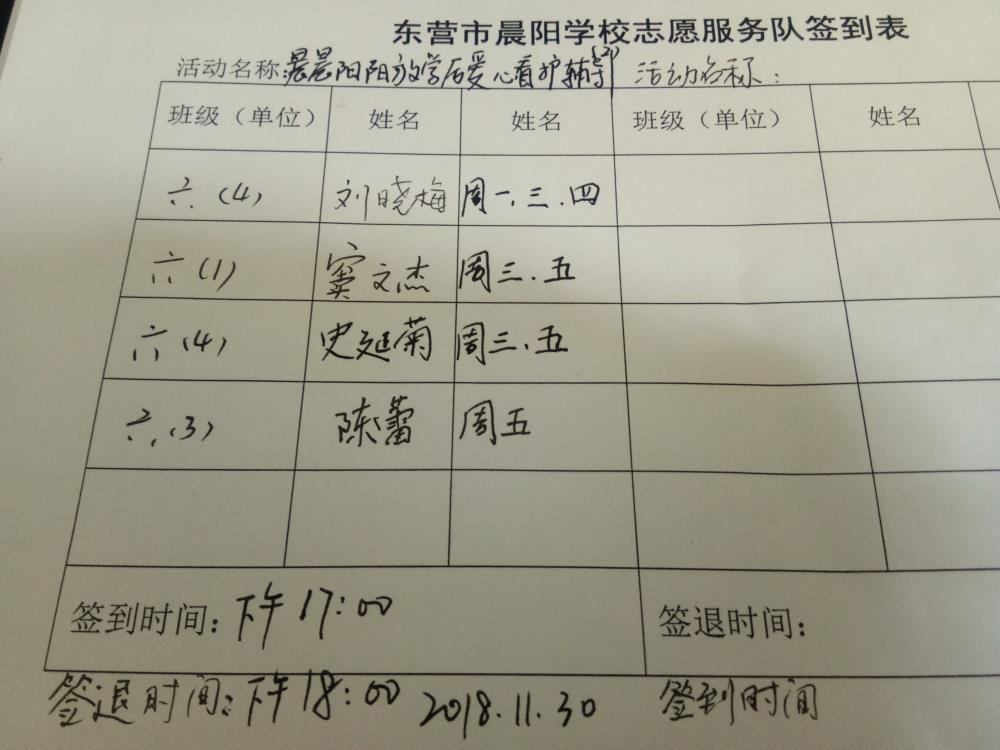 东营市晨阳学校志愿服务队签到表
活动名称:晨晨阳阳放学后爱心看护辅导(2) 活动名称:
班级（单位） 姓名 姓名 班级（单位） 姓名
六.(4) 刘晓梅 周一.三.四
六(1) 窦文杰 周三.五
六(4) 史延菊 周三.五
六.(3) 陈蕾 周五
签到时间: 下午17:00 签退时间:
签退时间:下午18:00 2018.11.30 签到时间